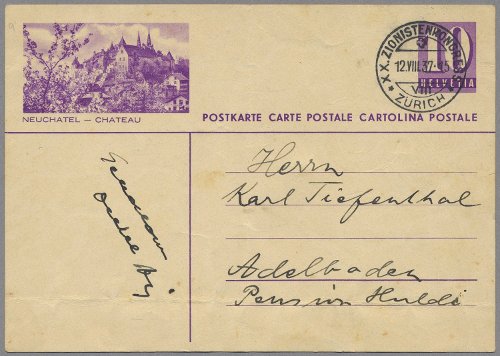 NEUCHATEL — CHATEAU
XX. ZIONISTENKONGRESS
12.VIII.37.-15
VIII
ZÜRICH
10
HELVETIA
POSTKARTE CARTE POSTALE CARTOLINA POSTALE
Herrn
Karl Tiefenthal
Adelboden
Pension Huldi